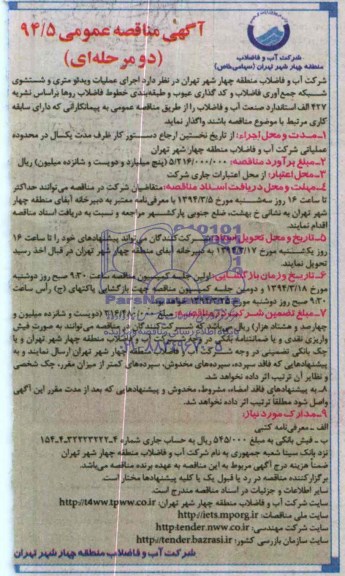 آگهی مناقصه عمومی ۹۴/۵
(دو مرحله‌ای)
شرکت آب و فاضلاب
منطقه چهار شهر تهران (سهامی خاص)
شرکت آب و فاضلاب منطقه چهار شهر تهران در نظر دارد اجرای عملیات ویدئو متری و شستشوی
شبکه جمع‌آوری فاضلاب و کد گذاری عیوب و طبقه‌بندی خطوط فاضلاب روها براساس نشریه
۴۲۷ الف استاندارد صنعت آب و فاضلاب را از طریق مناقصه عمومی به پیمانکارانی که دارای سابقه
کاری مرتبط با موضوع مناقصه باشند، واگذار نماید.
۱-مدت و محل اجراء: از تاریخ نخستین ارجاع دستور کار ظرف مدت یکسال در محدوده
عملیاتی شرکت آب و فاضلاب منطقه چهار شهر تهران
۲-مبلغ برآورد مناقصه: ۵/۲۱۶/۰۰۰/۰۰۰ (پنج میلیارد و دویست و شانزده میلیون) ریال
۳-محل اعتبار: از محل اعتبارات جاری شرکت
۴-مهلت و محل دریافت اسناد مناقصه: متقاضیان شرکت در مناقصه می‌توانند حداکثر
تا ساعت ۱۶ روز سه‌شنبه مورخ ۱۳۹۴/۳/۵ با معرفی‌نامه معتبر به دبیرخانه آبفای منطقه چهار
شهر تهران به نشانی خ بهشت، ضلع جنوبی پارکشهر مراجعه و نسبت به دریافت اسناد مناقصه
اقدام نمایند.
۵-تاریخ و محل تحویل اسناد: شرکت‌کنندگان می‌توانند پیشنهادهای خود را تا ساعت ۱۶
روز یکشنبه مورخ ۱۳۹۴/۳/۱۷ به دبیرخانه آبفای منطقه چهار شهر تهران در قبال اخذ رسید
تحویل نمایند.
۶-تاریخ و زمان بازگشایی: اولین جلسه کمیسیون مناقصه ساعت ۹:۳۰ صبح روز دوشنبه
مورخ ۱۳۹۴/۳/۱۸ و دومین جلسه کمیسیون مناقصه جهت بازگشایی پاکتهای (ج) رأس ساعت
۹:۳۰ صبح روز دوشنبه مورخ
۷-مبلغ تضمین شرکت در مناقصه: مبلغ (دویست و شانزده میلیون و
چهارصد و هشتاد هزار) ریال می‌باشد که شرکت‌کنندگان در مناقصه می‌توانند به صورت فیش
واریزی نقدی و یا ضمانتنامه بانکی در وجه شرکت آب و فاضلاب منطقه چهار شهر تهران و یا
چک بانکی تضمینی در وجه شرکت آب و فاضلاب منطقه چهار شهر تهران ارسال نمایند و به
پیشنهادهایی که فاقد سپرده، سپرده‌های مخدوش، سپرده‌های کمتر از میزان مقرر، چک شخصی
و نظایر آن ترتیب اثر داده نخواهد شد.
۸-به پیشنهادهای فاقد امضاء، مشروط، مخدوش و پیشنهادهایی که بعد از مدت مقرر این آگهی
واصل شود مطلقاً ترتیب اثر داده نخواهد شد.
۹-مدارک مورد نیاز:
الف - معرفی‌نامه کتبی
ب - فیش بانکی به مبلغ ۵۴۵/۰۰۰ ریال به حساب جاری شماره
نزد بانک سینا شعبه جمهوری به نام شرکت آب و فاضلاب منطقه چهار شهر تهران
ضمناً هزینه درج آگهی مربوط به این مناقصه به عهده برنده مناقصه می‌باشد.
برگزارکننده مناقصه در رد یا قبول یک یا کلیه پیشنهادها مختار است.
سایر اطلاعات و جزئیات در اسناد مناقصه مندرج است.
سایت شرکت آب و فاضلاب منطقه چهار شهر تهران: http://t4ww.tpww.co.ir
سایت ملی مناقصات: http://iets.mporg.ir
سایت شرکت مهندسی: http:tender.nww.co.ir
سایت سازمان بازرسی کشور: http://tender.bazrasi.ir
شرکت آب و فاضلاب منطقه چهار شهر تهران